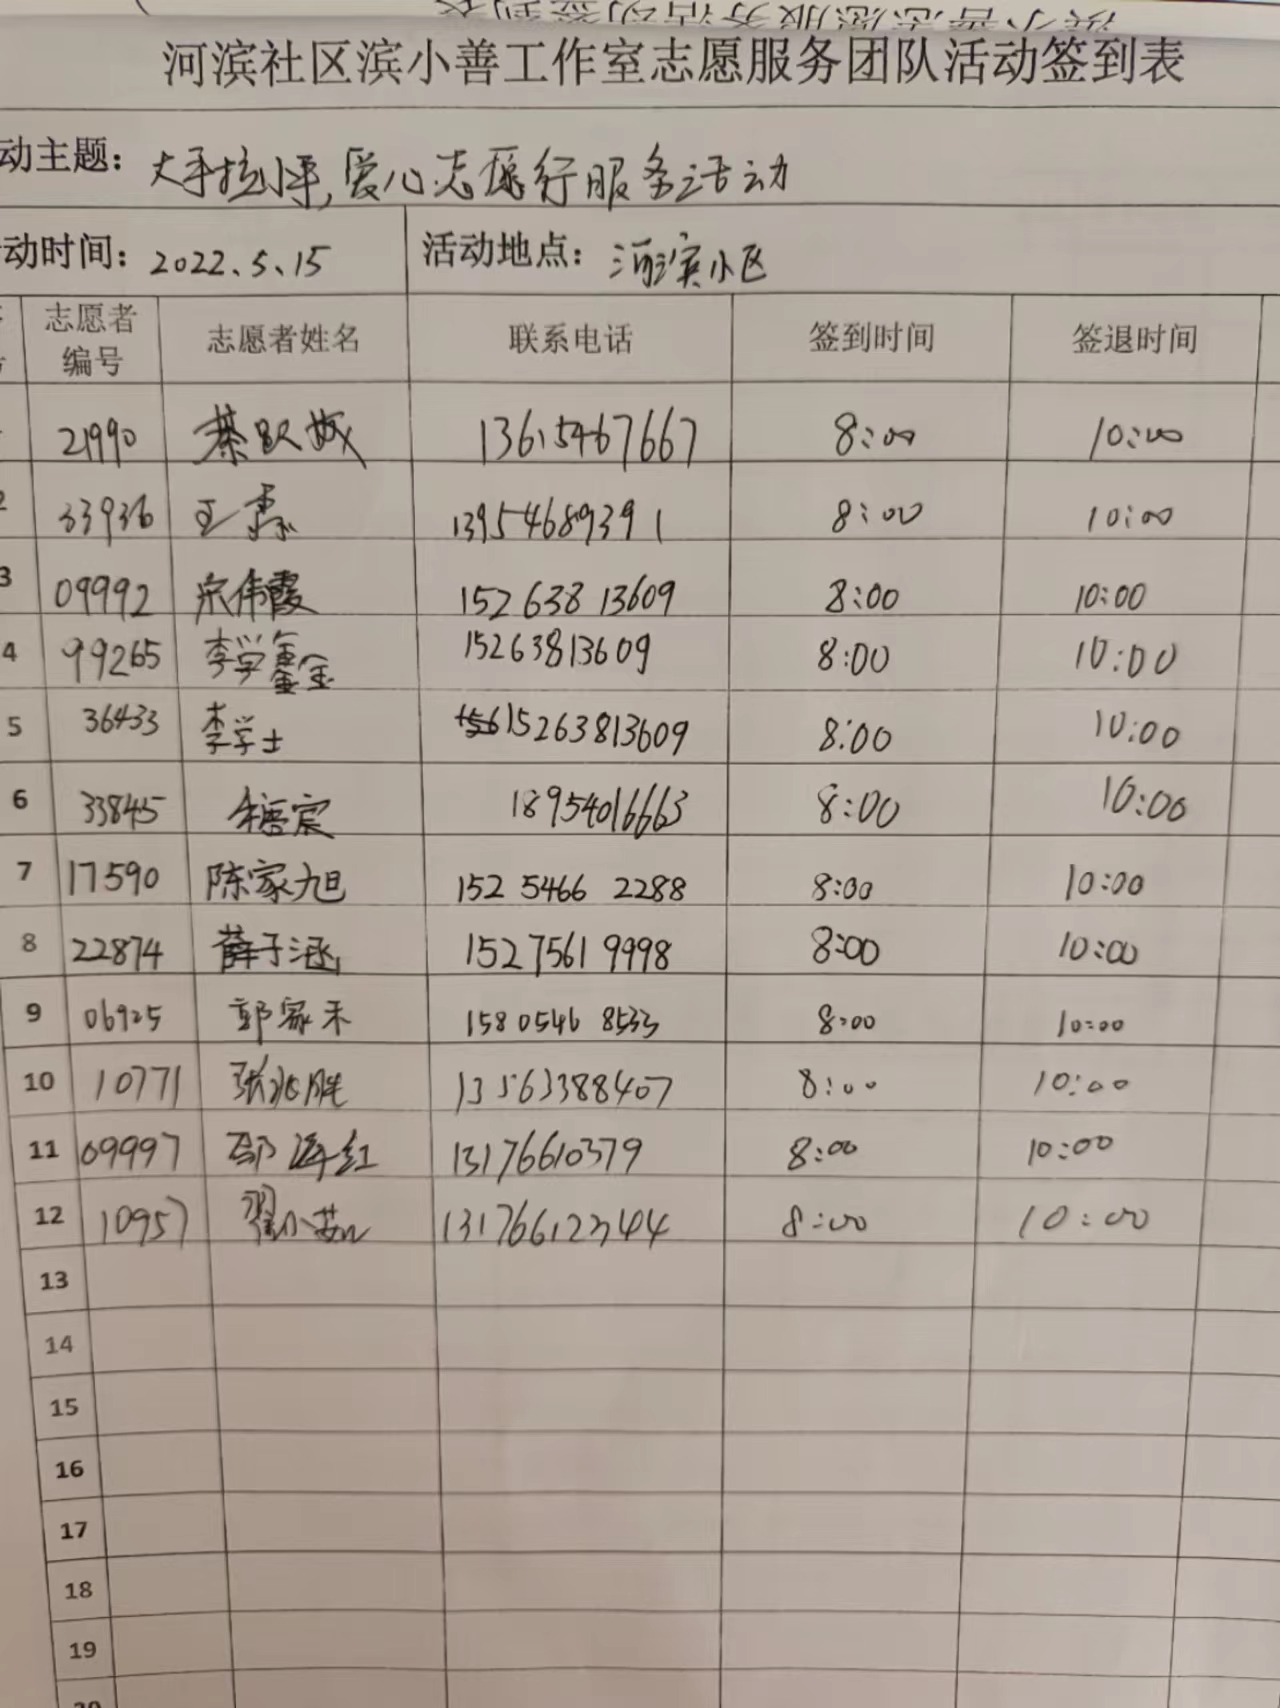 河滨社区滨小善工作室志愿服务团队活动签到表
动主题：大手拉小手,爱心志愿行服务活动
动时间：2022.5.15 活动地点：河滨小区
志愿者编号 志愿者姓名 联系电话 签到时间 签退时间
21990 13615467667 8:00 10:00
2 33936 王 13954689391 8:00 10:00
3 09992 宋伟霞 152 638 13609 8:00 10:00
4 99265 李学鑫 15263813609 8:00 10:00
5 36433 李学士 15263813609 8:00 10:00
6 33845 宸 18954016663 8:00 10:00
7 17590 陈家旭 152 5466 2288 8:00 10:00
8 22874 薛子涵 152 7561 9998 8:00 10:00
9 06925 郭家禾 158 0546 8533 8:00 10:00
10 10771 张兆胜 13563388407 8:00 10:00
11 09997 海红 13176610379 8:00 10:00
12 10957 翟小茹 8:00 10:00
13
14
15
16
17
18
19
20